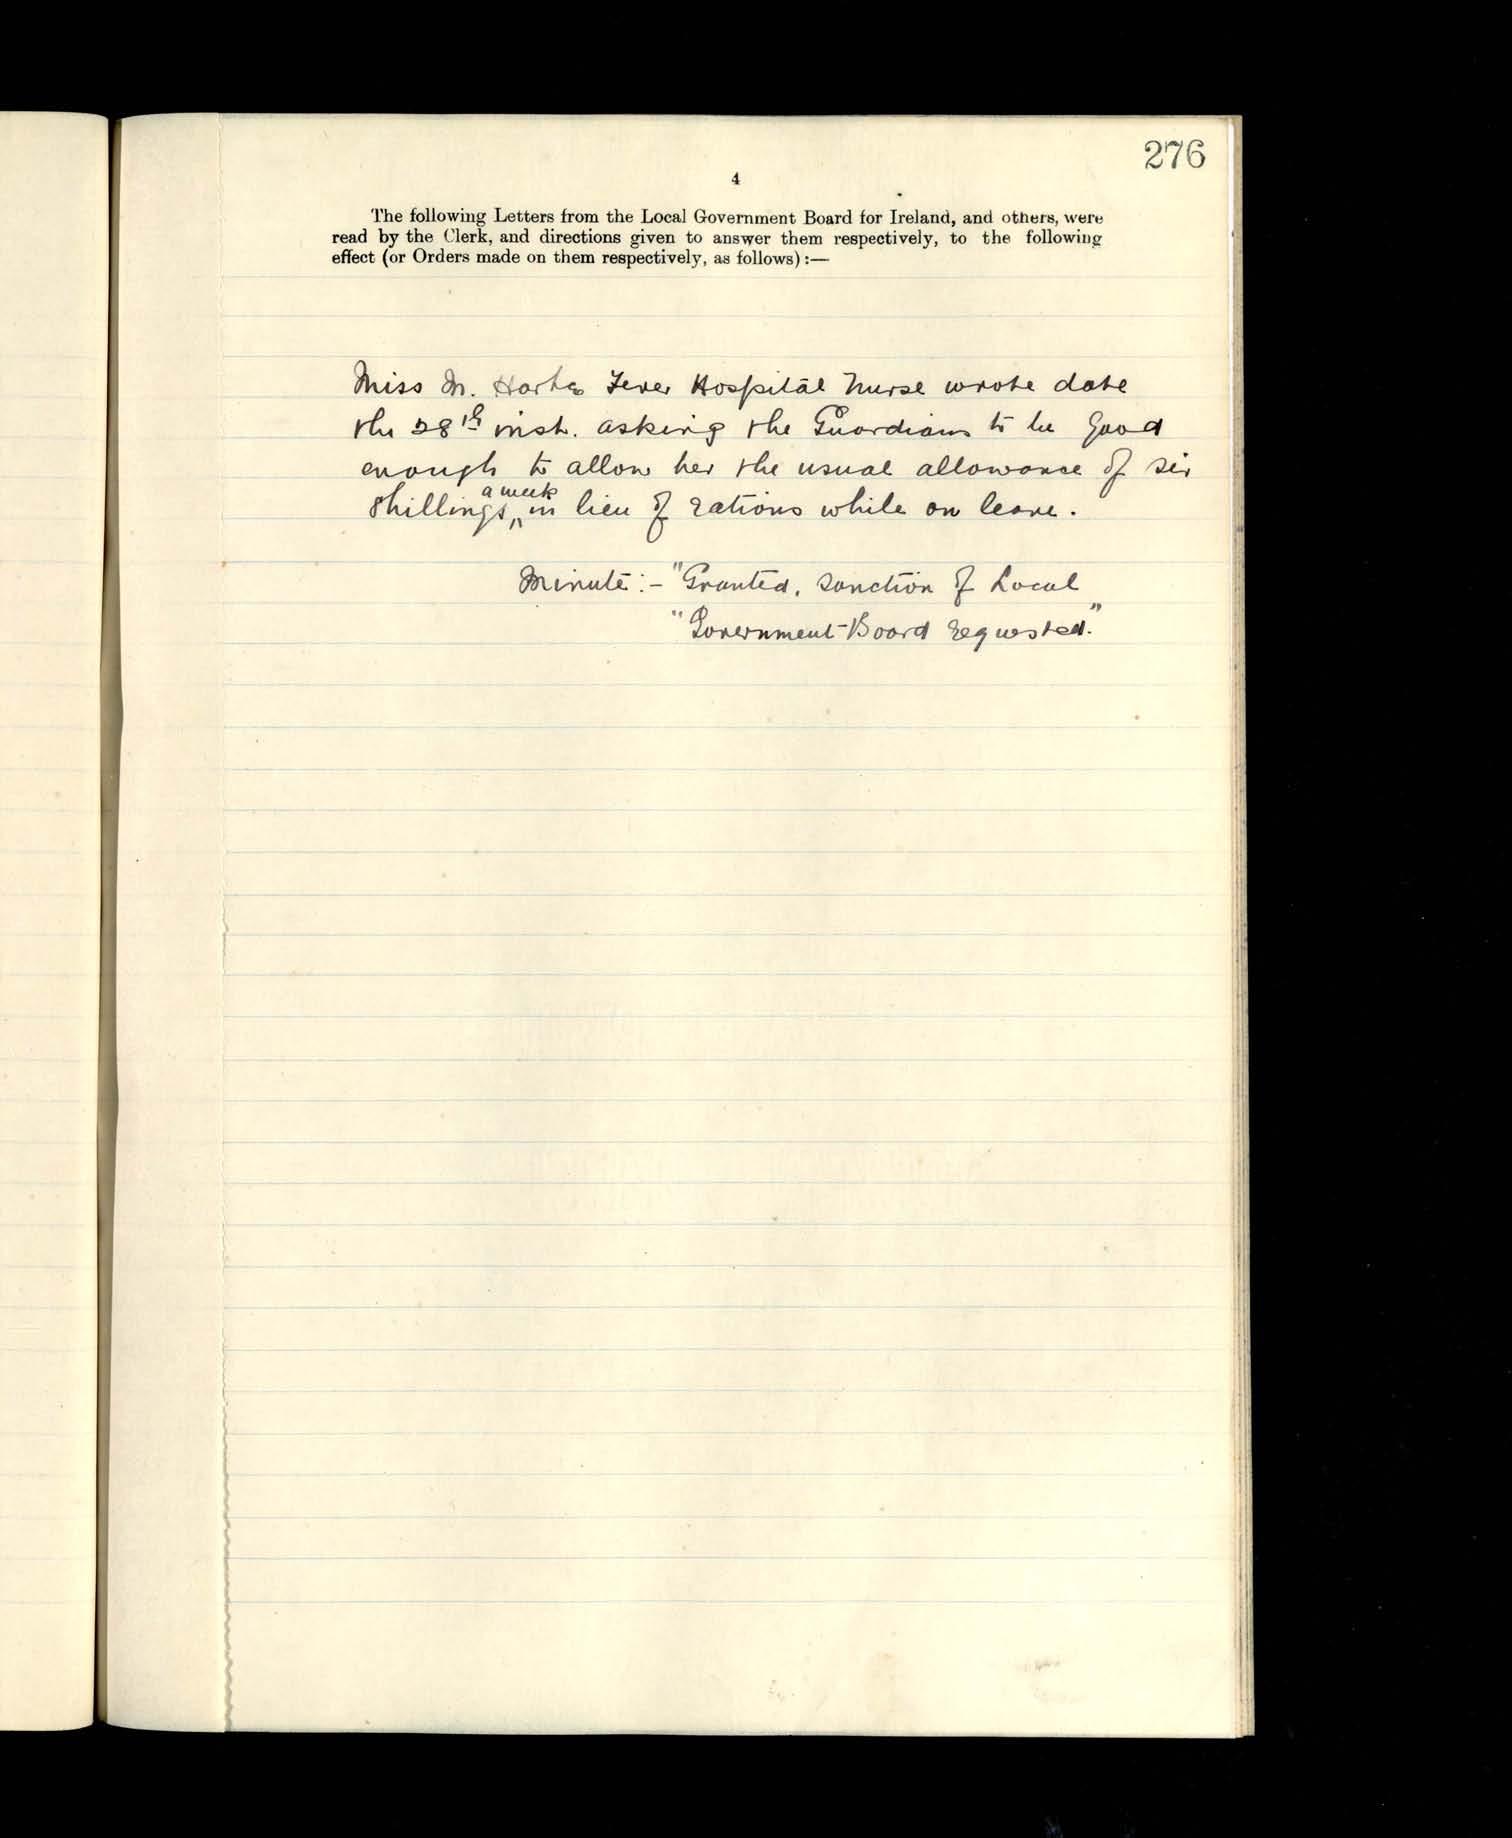 276
4
The following Letters from the Local Government Board for Ireland, and others, were
read by the Clerk, and directions given to answer them respectively, to the following
effect (or Orders made on them respectively, as follows) :—
Miss M. Harte Fever Hospital Nurse wrote date
the 28th inst. asking the Guardians to be good
enough to allow her the usual allowance of six
shillings a week in lieu of rations while on leave.
Minute :- "Granted, sanction of Local
"Government Board requested."